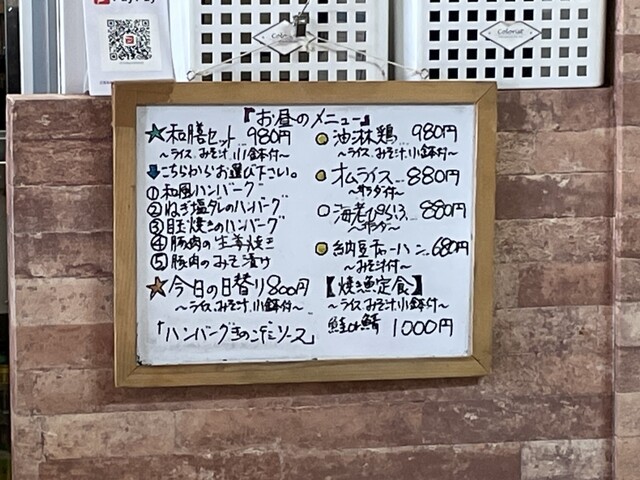 PayPay
Colorist
『お昼のメニュー』
★和膳セット…980円
～ライス、みそ汁、小鉢付～
↓こちらからお選び下さい。
①和風ハンバーグ
②ねぎ塩ダレのハンバーグ
③目玉焼きのハンバーグ
④豚肉の生姜焼き
⑤豚肉のみそ漬け
★今日の日替り800円
～ライス、みそ汁、小鉢付～
「ハンバーグきのこデミソース」
油淋鶏…980円
～ライス、みそ汁、小鉢付～
オムライス…880円
～サラダ付～
海老ぴらふ…880円
～サラダ～
納豆チャーハン…680円
～みそ汁付～
【焼漁定食】
～ライス、みそ汁、小鉢付～
鮭or鯖 1000円